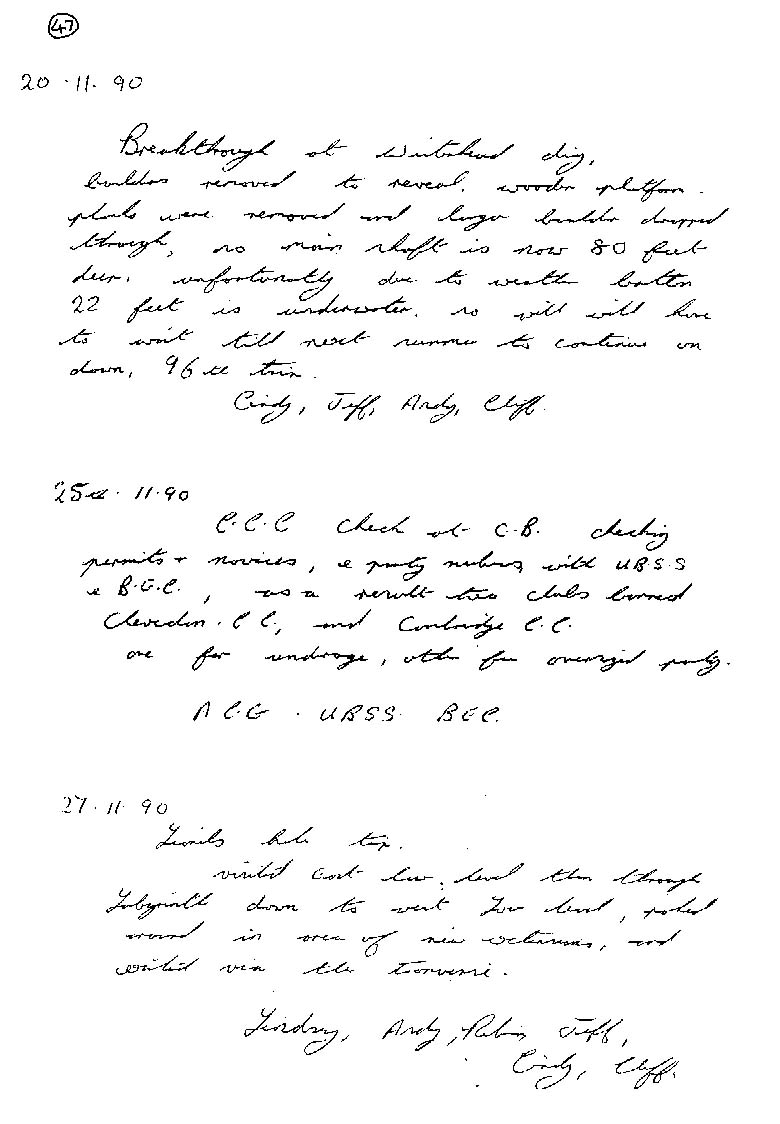 47
20.11.90
Breakthrough at Winterhead dig,
boulders removed to reveal, wooden platform.
planks were removed and large boulder dropped
through, so main shaft is now 80 feet
deep. unfortunatly due to weather bottom
22 feet is underwater. so will will have
to wait till next summer to continue on
down, 96th trip.
Cindy, Jeff, Andy, Cliff.
25th. 11.90
C.C.C check at C.B. checking
permits + novices, & party numbers with UBSS
& B.E.C., as a result two clubs banned
Clevedon. C C, and Cambridge C.C.
one for underage, other for oversized party.
A C G . UBSS. BEC.
27.11.90
Lionels hole trip.
visited east low. level then through
Labyrinth down to west low level, poked
around in area of new extensions, and
exited via the traverse.
Lindsay, Andy, Robin, Jeff,
Cindy, Cliff.